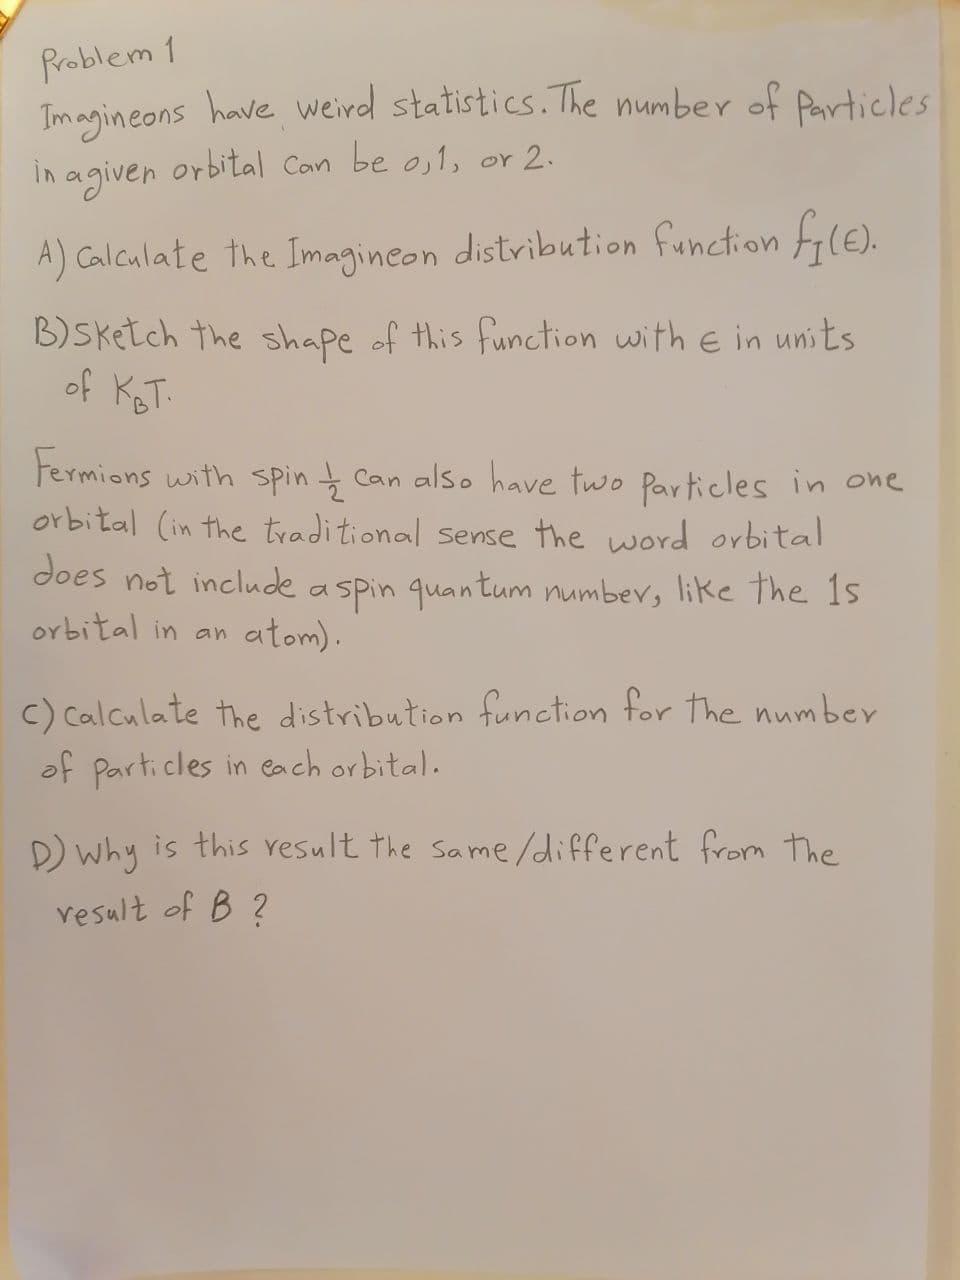 Problem 1
Imagineons have weird statistics. The number of Particles
in a given orbital can be 0,1, or 2.
A) Calculate the Imagineon distribution function f_I(ϵ).
B) Sketch the shape of this function with ϵ in units
of K_BT.
Fermions with spin 1/2 can also have two Particles in one
orbital (in the traditional sense the word orbital
does not include a spin quantum number, like the 1s
orbital in an atom).
C) Calculate the distribution function for the number
of Particles in each orbital.
D) Why is this result the same/different from The
result of B ?